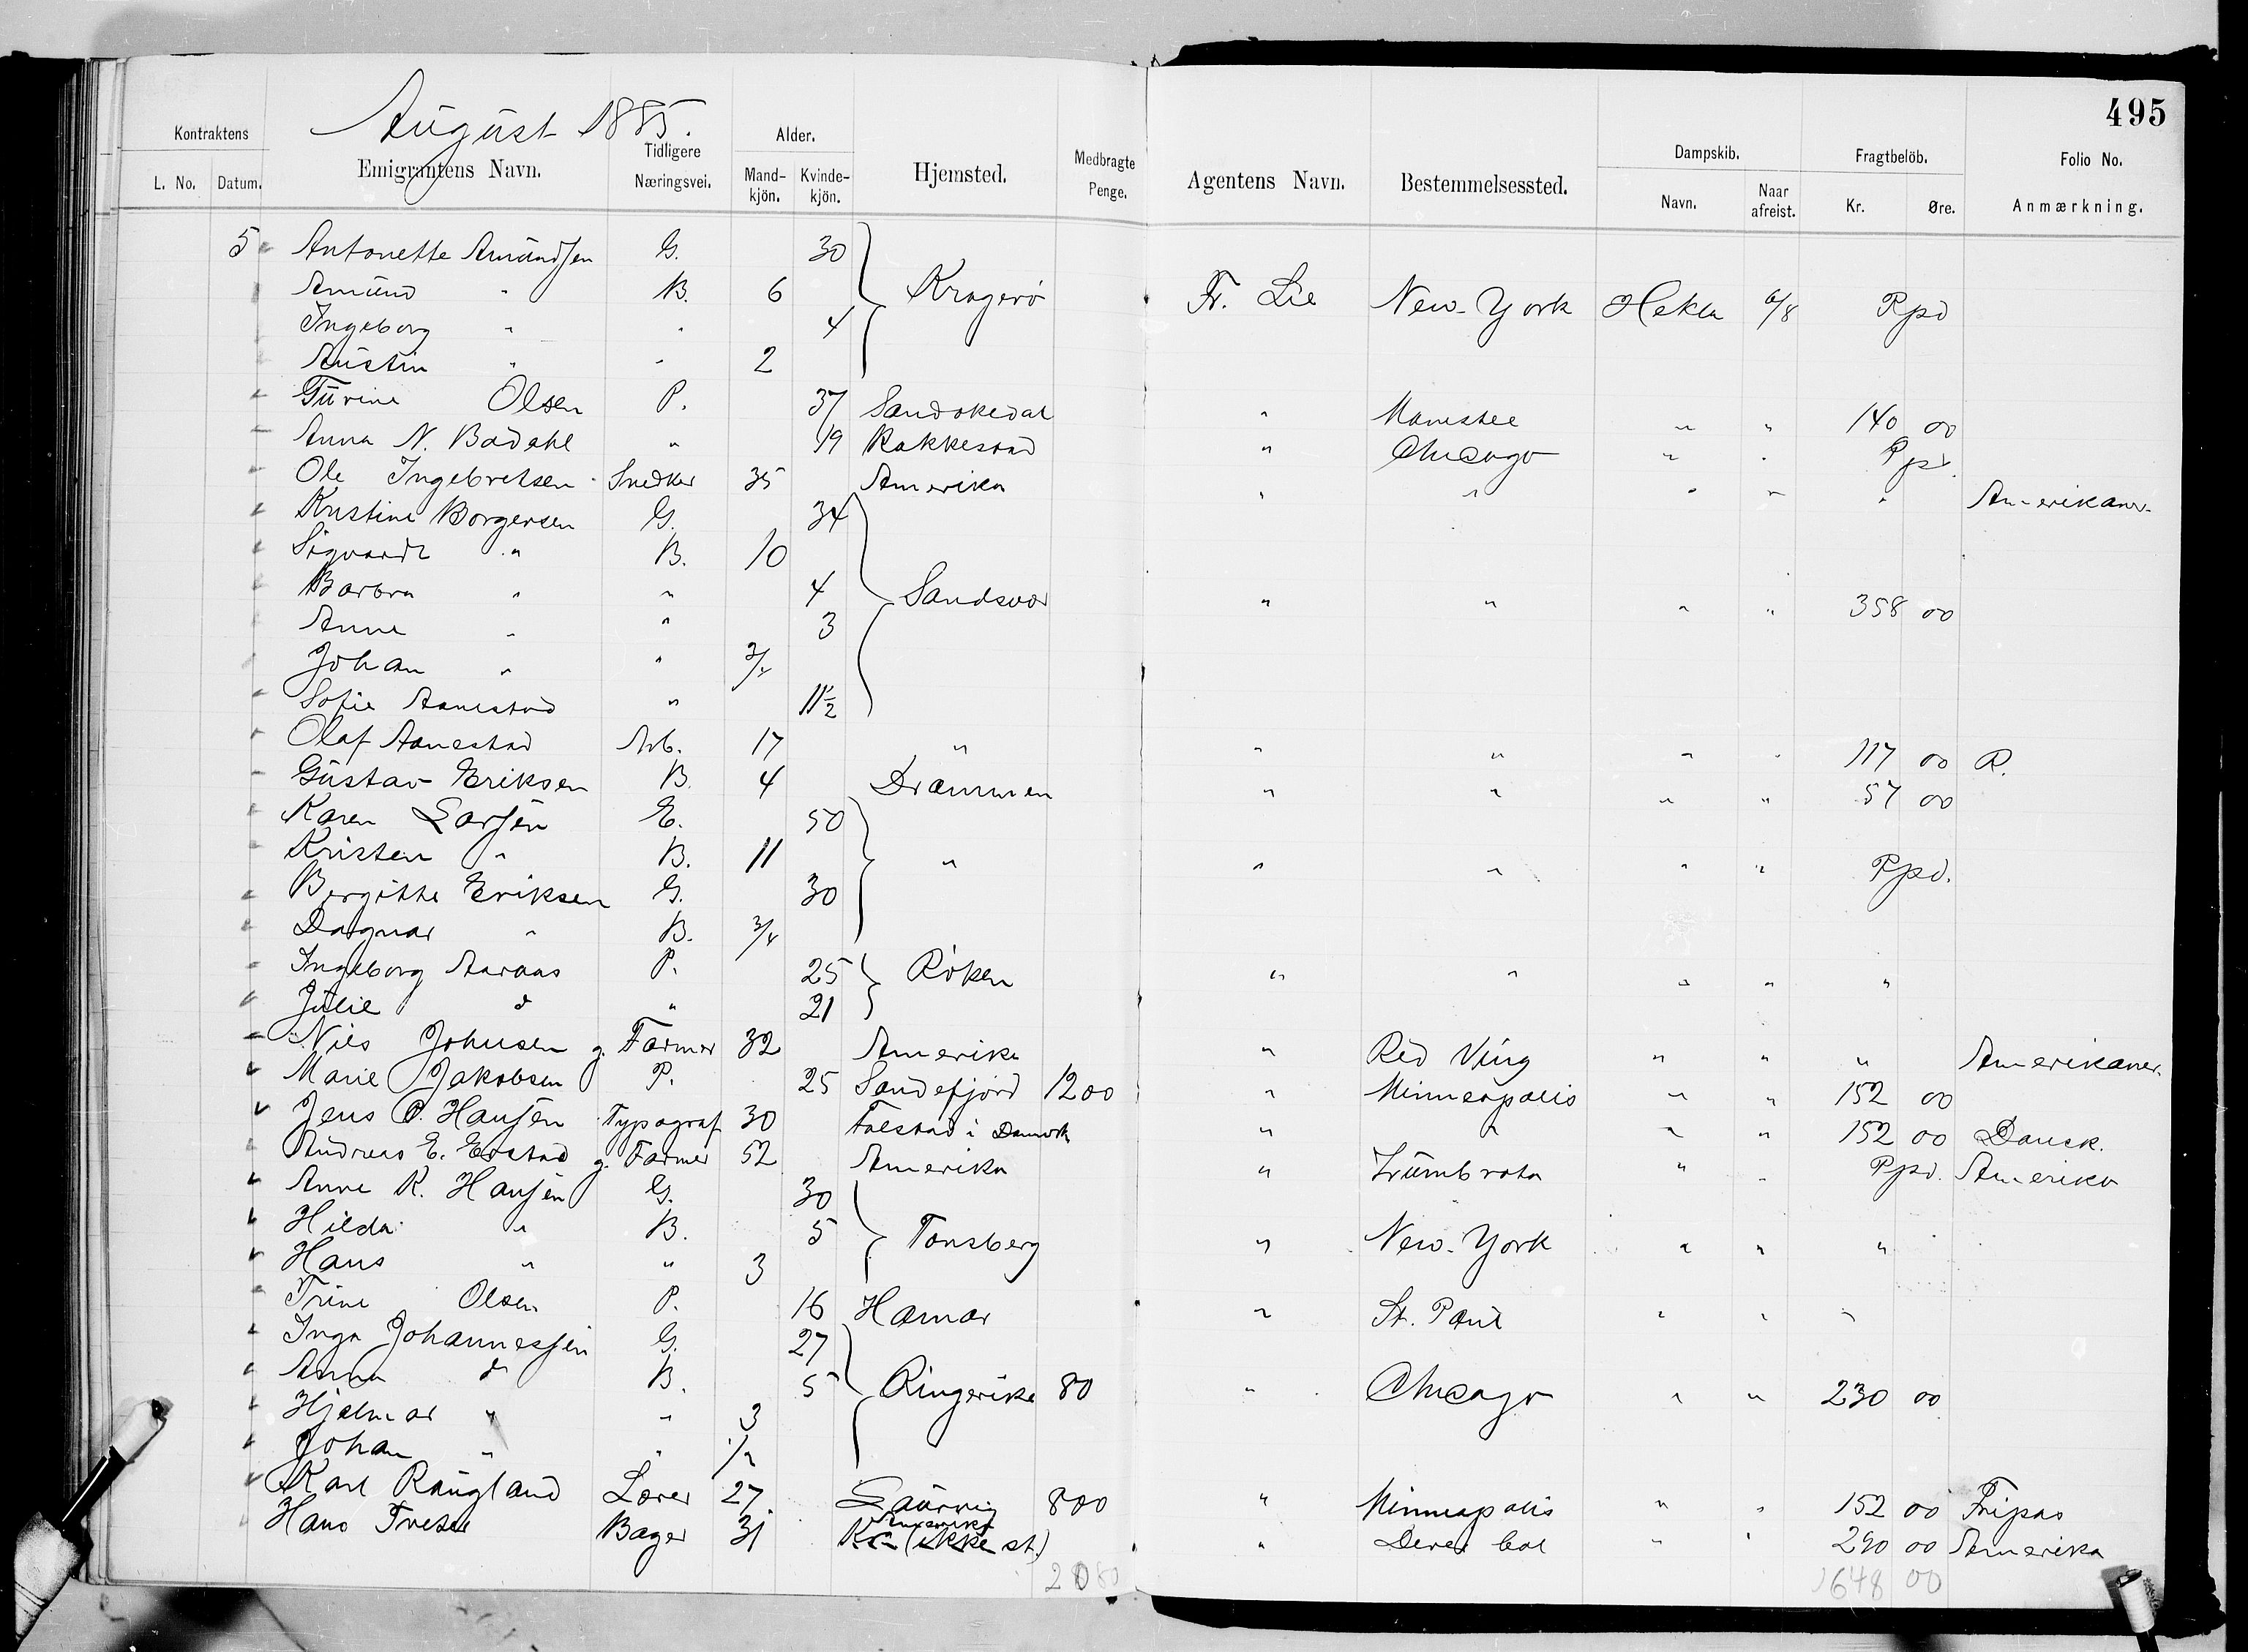 495
August 1885.
Kontraktens L. No. Datum. Emigrantens Navn. Tidligere Næringsvei. Alder. Mandkjön. Kvindekjön. Hjemsted. Medbragte Penge. Agentens Navn. Bestemmelsessted. Dampskib. Navn. Naar afreist. Fragtbelöb. Kr. Øre. Folio No. Anmærkning.
5 Antonette Amundsen G. 30
Amund " B. 6 Kragerö Fr. Lie New-York Hekla 6/8 Ppd
Ingeborg " " 4
Austin " " 2
Turine Olsen P. 37 Sandökedal " Manistee " " 140 00
Anna N. Bodahl " 19 Rakkestad " Chicago " " Ppd.
Ole Ingebretsen Snedker 35 Amerika " " " " " Amerikaner.
Kristine Borgersen G. 34
Sigvardt " B. 10
Barbra " " 4 Sandsvær " " " " 358 00
Anne " " 3
Johan " " 3/4
Sofie Aanestad " 11½
Olaf Aanestad Arb. 17 " " " " " 117 00 R.
Gustav Eriksen B. 4 Drammen " " " " 57 00
Karen Larsen E. 50
Kristen " B. 11 " " " " " Ppd.
Bergitte Eriksen G. 30
Dagmar " B. 3/4
Ingeborg Aaraas P. 25 Röken " " " " "
Julie d " 21
Nils Johnsen g. Farmer 32 Amerika " Red Ving " " " Amerikaner.
Marie Jakobsen P. 25 Sandefjord 1200 " Minneapolis " " 152 00
Jens P. Hansen Typograf 30 i Danmark " " " " 152 00 Dansk.
Andreas E. g. Farmer 52 Amerika " Zumbrota " " Ppd. Amerika
Anne K. Hansen G. 30
Hilda " B. 5 Tønsberg " New-York " " "
Hans " " 3
Trine Olsen P. 16 Hamar " St. Paul " " "
Inga Johannessen G. 27
Anna d B. 5 Ringerike 80 " Chicago " " 230 00
Hjalmar " " 3
Johan " " ½
Karl Raugland Lærer 27 Laurvig 800 " Minneapolis " " 152 00 Fripas
Hans Bager 31 Amerika
Kra (ikke st.) " " " 290 00 Amerika
2080 1648 00